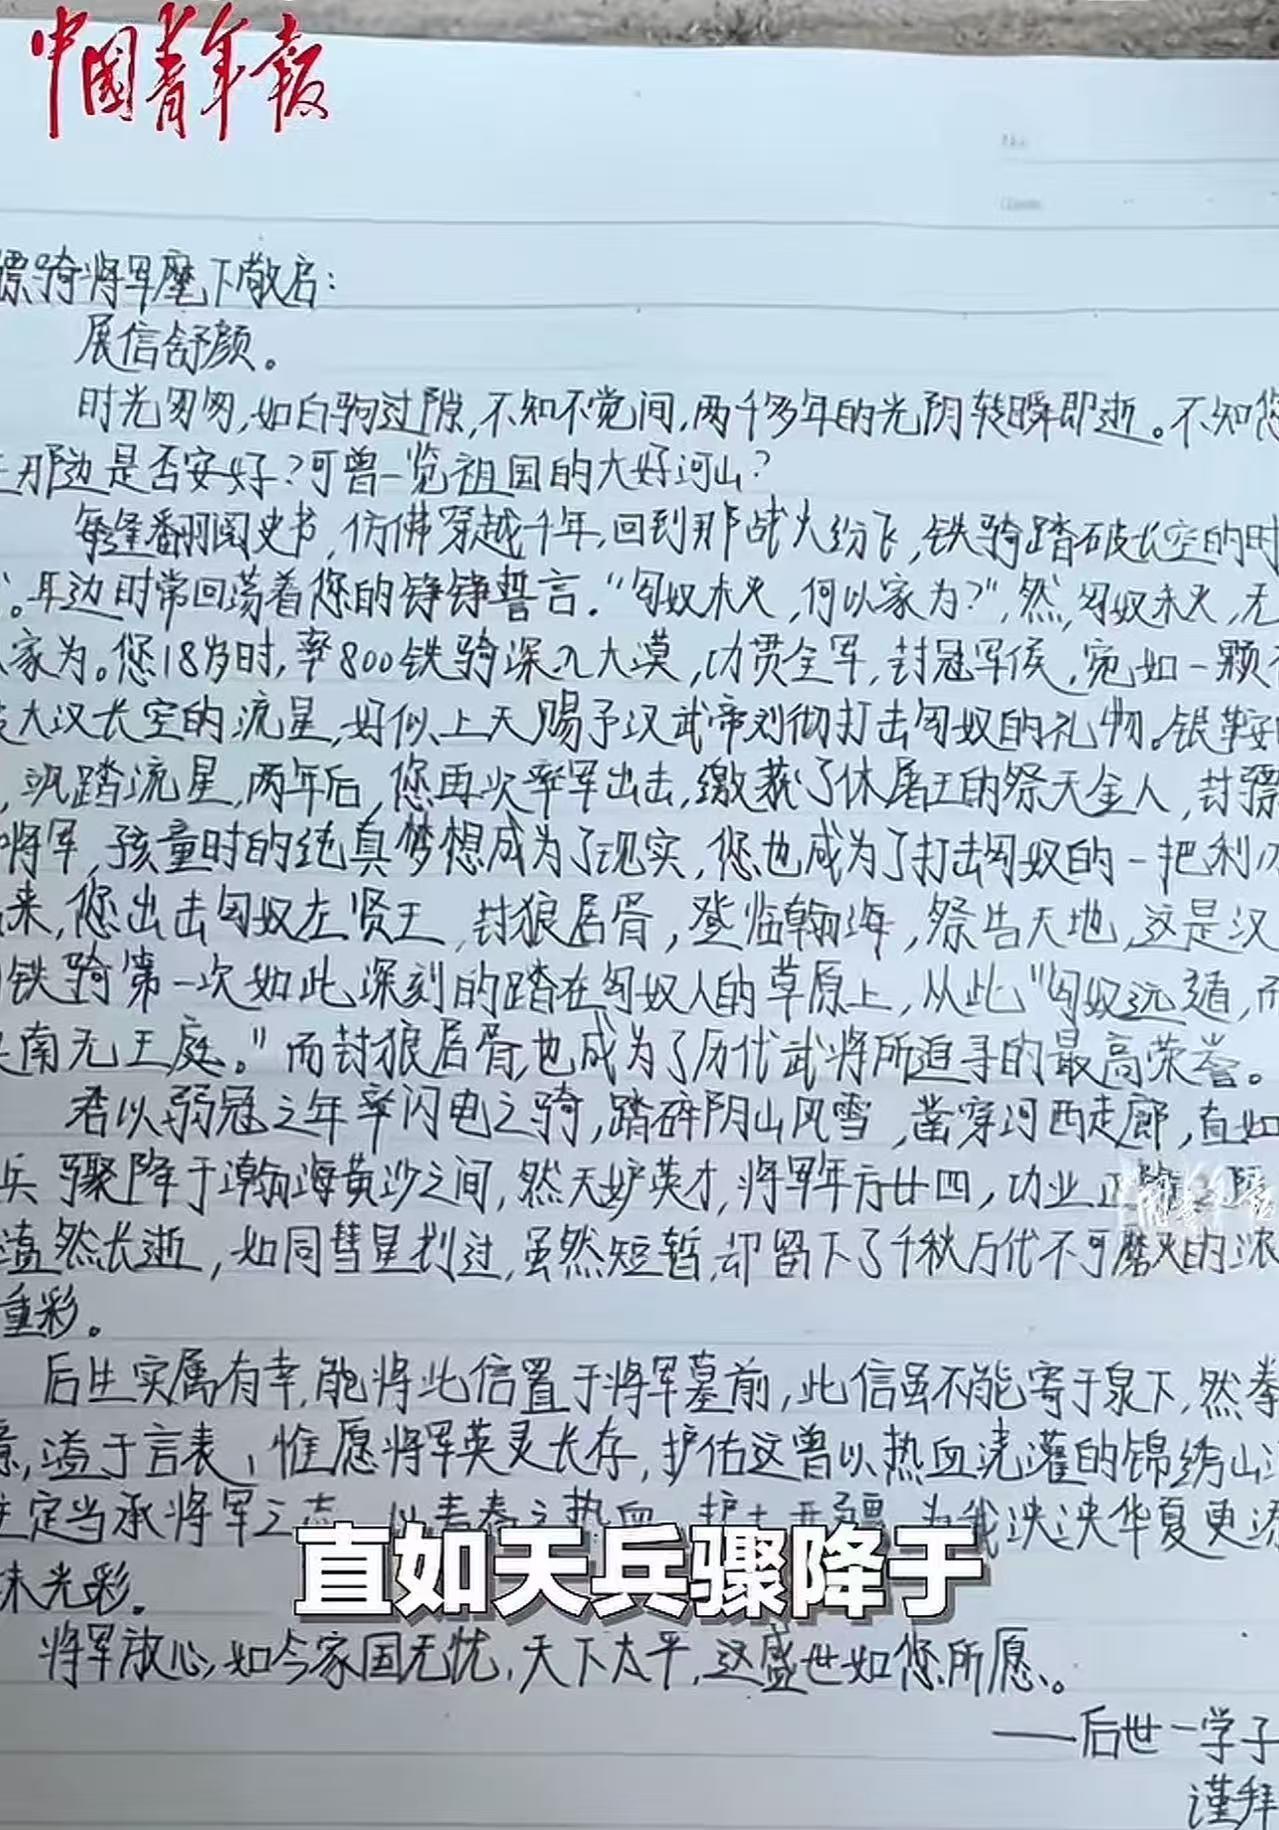 中国青年报
骠骑将军麾下敬启：
展信舒颜。
时光匆匆，如白驹过隙，不知不觉间，两千多年的光阴转瞬即逝。不知您
那边是否安好？可曾一览祖国的大好河山？
每逢翻阅史书，仿佛穿越千年，回到那战火纷飞，铁骑踏破长空的时
。耳边时常回荡着您的铮铮誓言。“匈奴未灭，何以家为？”，然，匈奴未灭，无
家为。您18岁时，率800铁骑深入大漠，功贯全军，封冠军侯，宛如一颗
大汉长空的流星，好似上天赐予汉武帝刘彻打击匈奴的礼物。银鞍
，飒踏流星，两年后，您再次率军出击，缴获了休屠王的祭天金人，封骠
将军，孩童时的纯真梦想成为了现实，您也成为了打击匈奴的一把利刃
来，您出击匈奴左贤王，封狼居胥，登临瀚海，祭告天地，这是汉
铁骑第一次如此深刻的踏在匈奴人的草原上，从此“匈奴远遁，而
南无王庭。”而封狼居胥，也成为了历代武将所追寻的最高荣誉。
君以弱冠之年率闪电之骑，踏碎阴山风雪，凿穿河西走廊，直如
兵骤降于瀚海黄沙之间，然天妒英才，将军年方廿四，功业正
溘然长逝，如同彗星划过，虽然短暂，却留下了千秋万代不可磨灭的浓
重彩。
后生实属有幸，能将此信置于将军墓前，此信虽不能寄于泉下，然拳
意，溢于言表，惟愿将军英灵长存，护佑这曾以热血浇灌的锦绣山
定当承将军之志，以青春之热血，护土开疆，为我泱泱华夏更添
抹光彩。
直如天兵骤降于
将军放心，如今家国无忧，天下太平，这盛世如您所愿、。
——后世一学子
谨拜